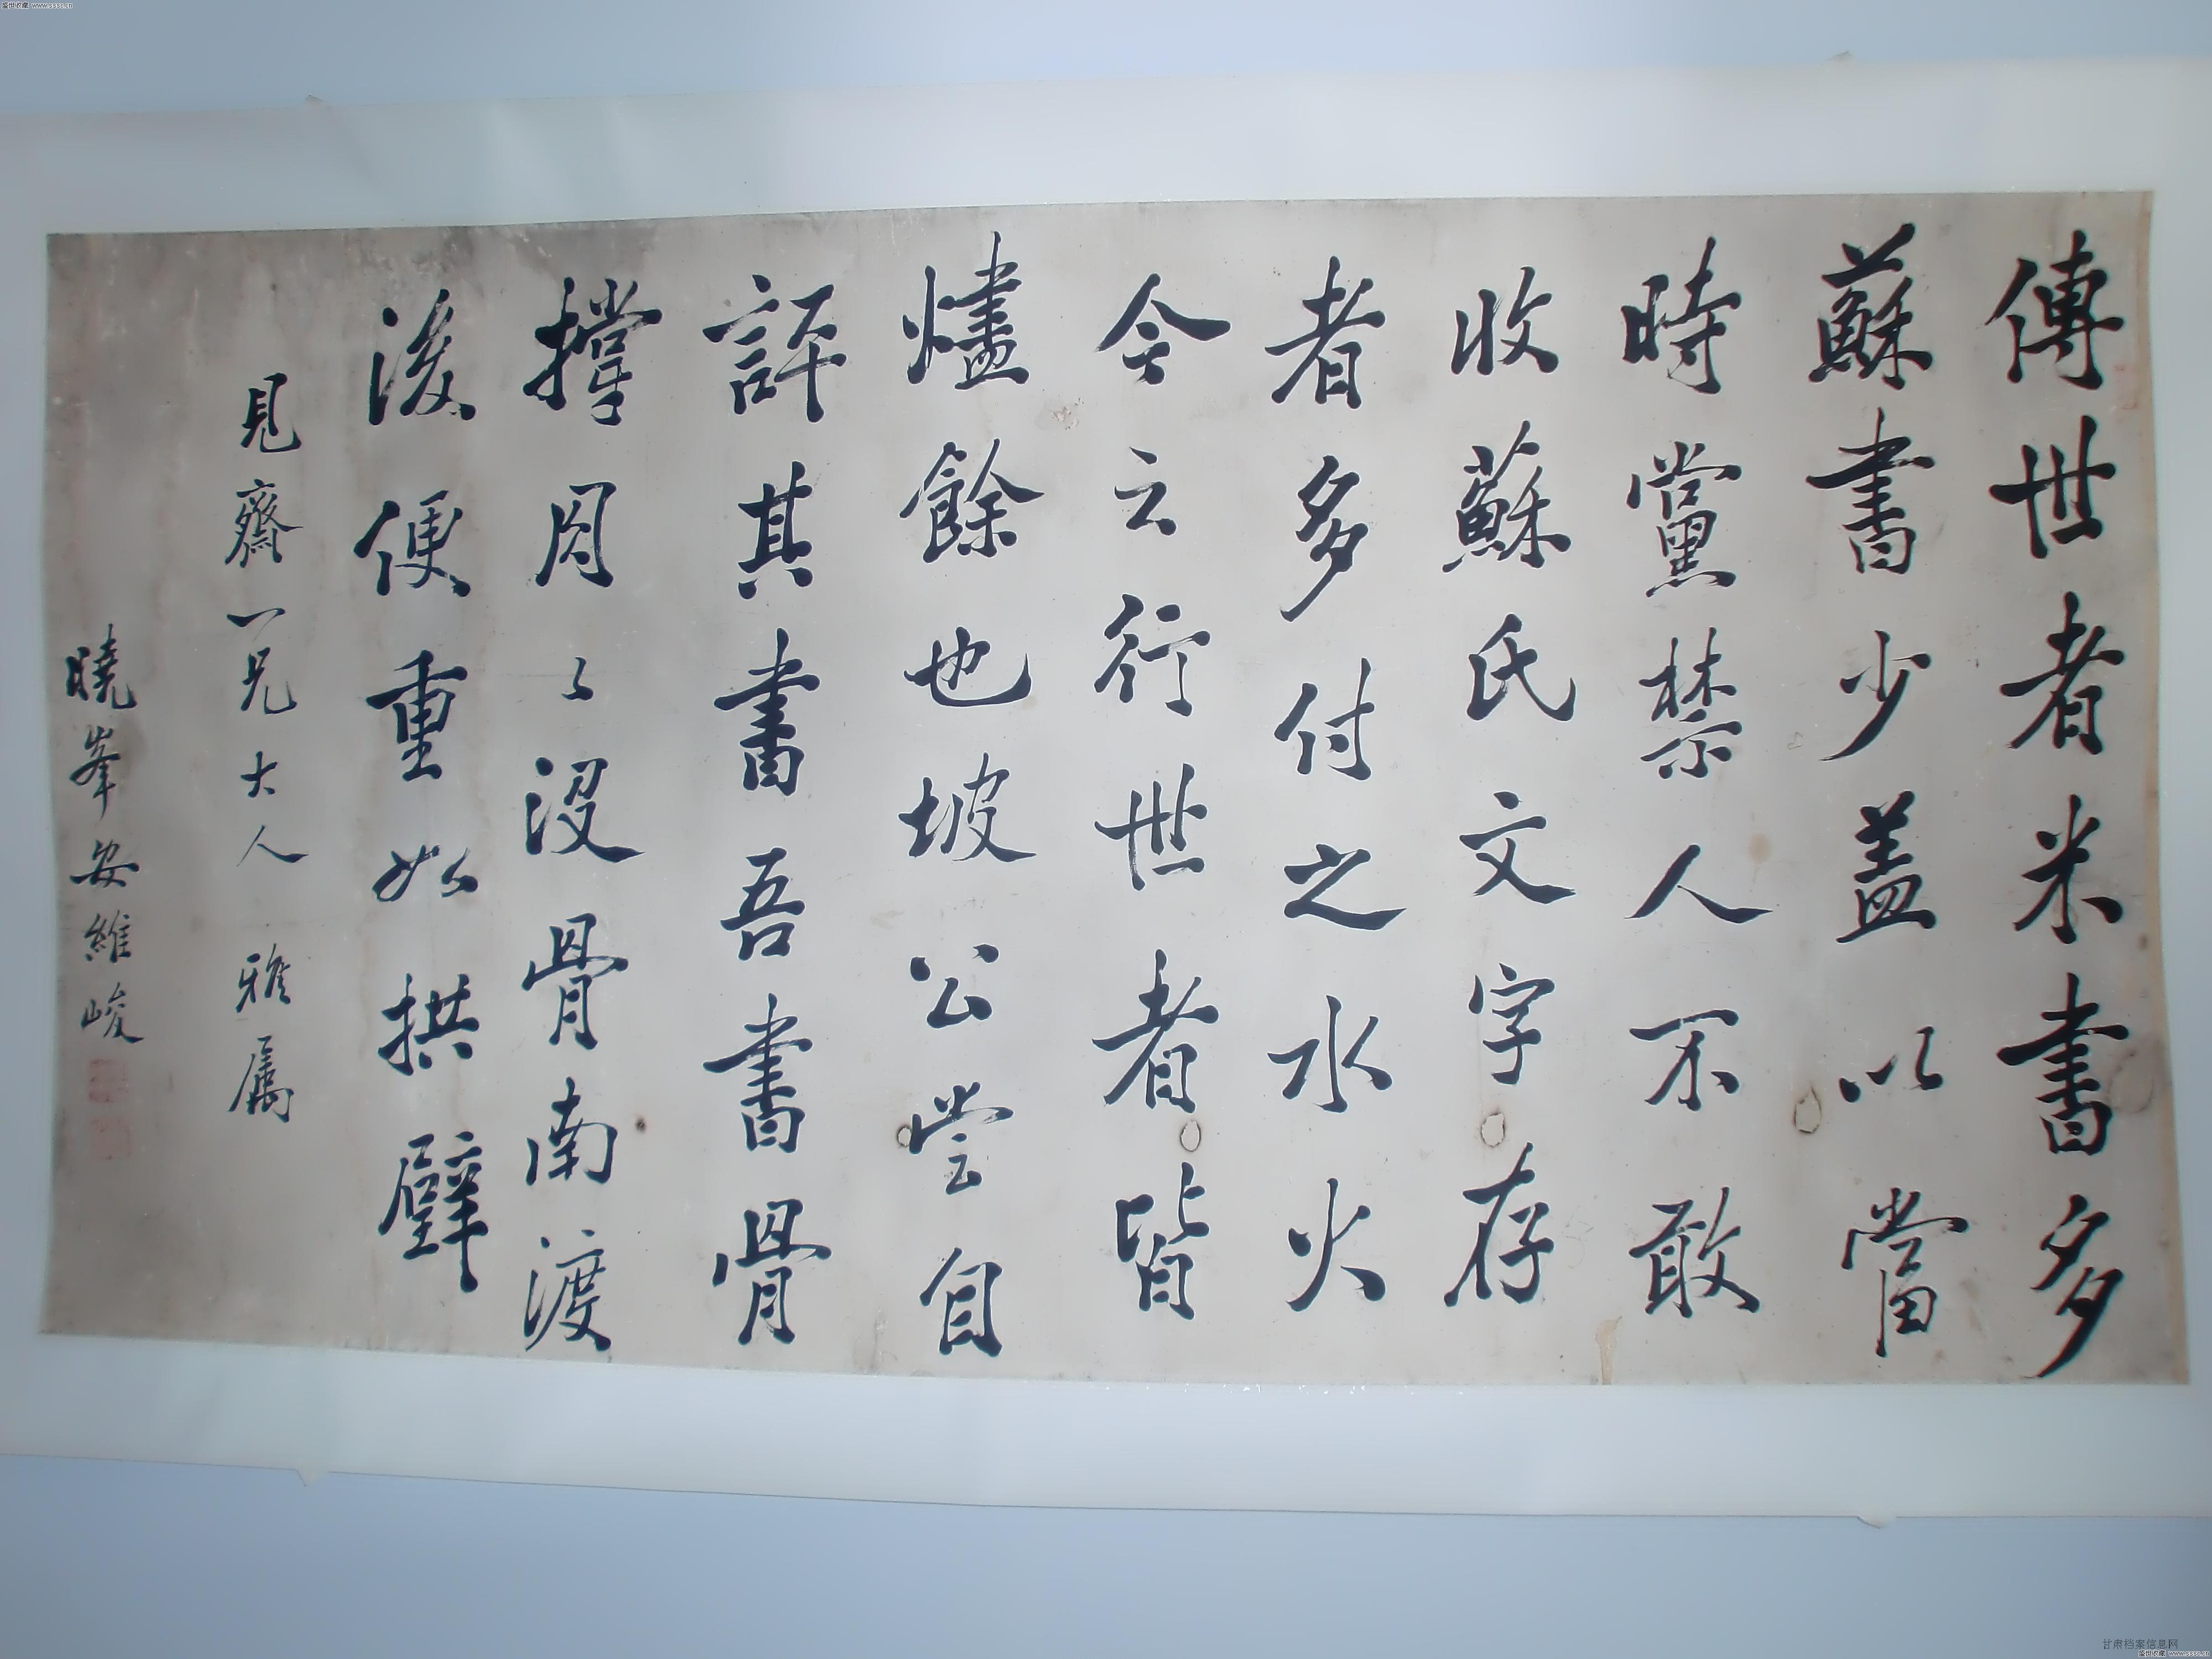 傳世者米書多
蘇書少蓋以當
時黨禁人不敢
收蘇氏文字存
者多付之水火
今云行世者皆
燼餘也坡公嘗自
評其書吾書骨
撐肉〻沒骨南渡
後便重如拱璧
見齋一兄大人 雅属
曉峯安維峻
甘肃档案信息网
盛世收藏 www.sssc.cn
盛世收藏 www.sssc.cn